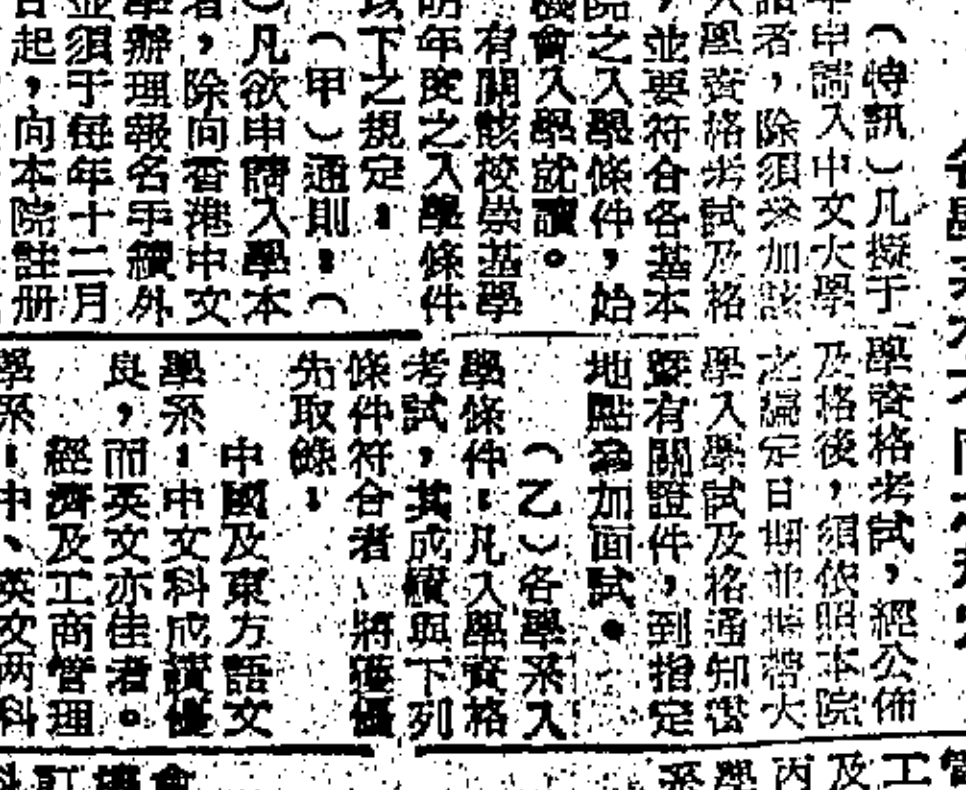 （特訊）凡擬于
年申請入中文大學
者，除須參加該
入學資格考試及格
，並要符合各基本
院之入學條件，始
機會入學就讀。
有關該校崇基學
明年度之入學條件
下之規定：
（甲）通則：（
）凡欲申請入學本
者，除向香港中文
學辦理報名手續外
並須于每年十二月
起，向本院註册
學資格考試，經公佈
及格後，須依照本院
之編定日期並携帶大
學入學試及格通知
暨有關證件，到指定
地點參加面試。
（乙）各學系入
學條件：凡入學資格
考試，其成績與下列
條件符合者、將獲優
先取錄：
中國及東方語文
學系：中文科成績優
良，而英文亦佳者。
經濟及工商管理
學系：中、英文两科
管
工
及
內
學
系
會
訂
科